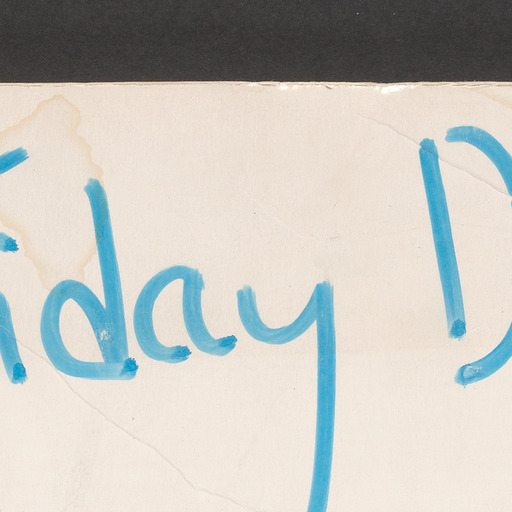 iday D